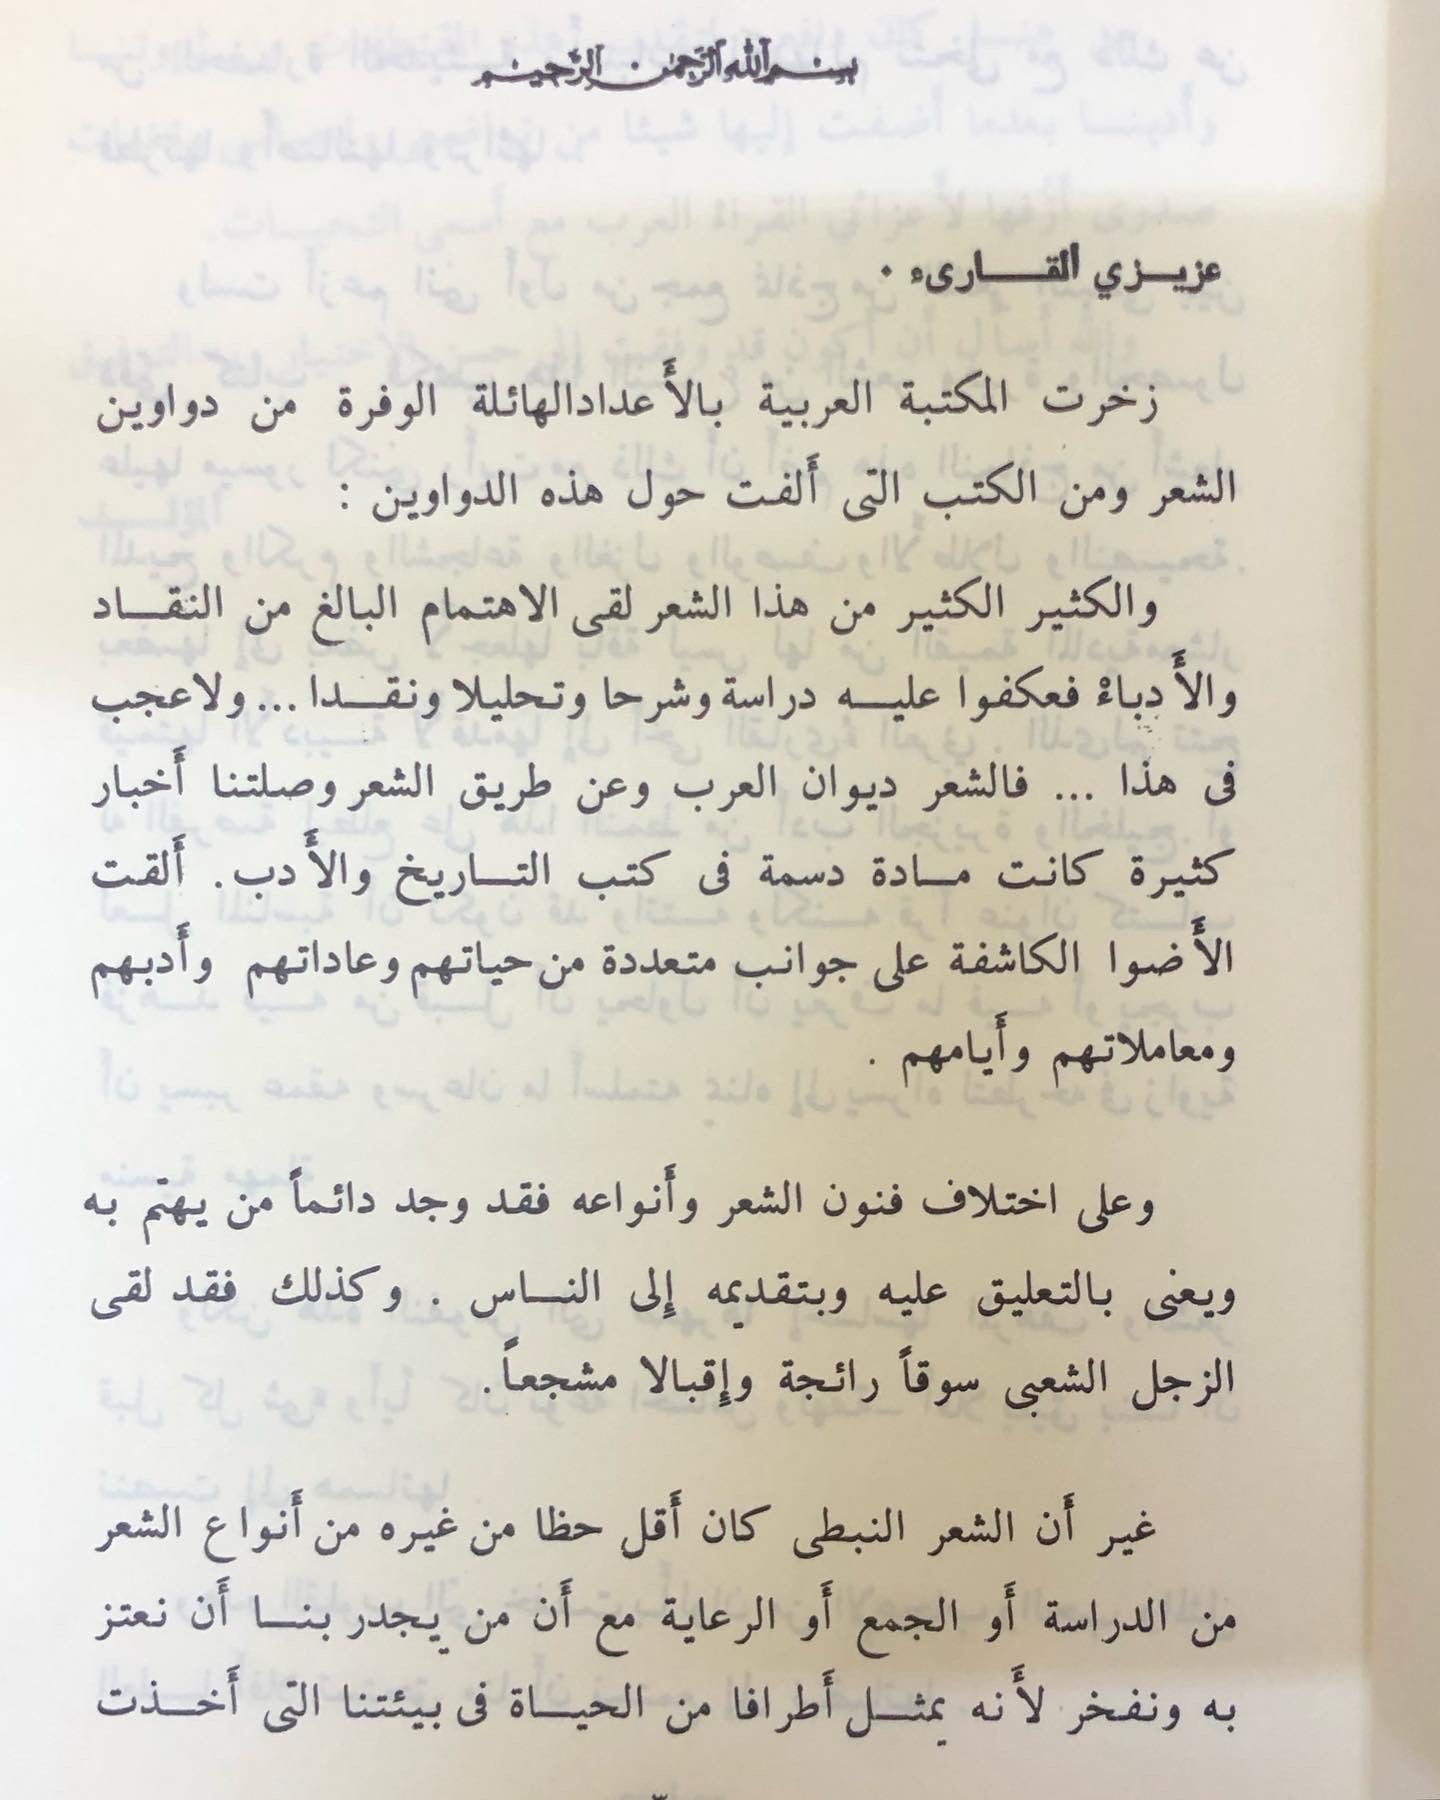 بسم الله الرحمن الرحيم
عزيزي القارىء .
زخرت المكتبة العربية بالأعدادالهائلة الوفرة من دواوين
الشعر ومن الكتب التى أَلفت حول هذه الدواوين :
والكثير الكثير من هذا الشعر لقى الاهتمام البالغ من النقاد
والأَدباءْ فعكفوا عليه دراسة وشرحا وتحليلا ونقدا ... ولاعجب
فى هذا ... فالشعر ديوان العرب وعن طريق الشعر وصلتنا أَخبار
كثيرة كانت مادة دسمة فى كتب التاريخ والأَدب . أَلقت
الأَضوا الكاشفة على جوانب متعددة من حياتهم وعاداتهم وأَدبهم
ومعاملاتهم وأَيامهم .
وعلى اختلاف فنون الشعر وأَنواعه فقد وجد دائماً من يهتم به
ويعنى بالتعليق عليه وبتقديمه إِلى الناس . وكذلك فقد لقى
الزجل الشعبى سوقاً رائجة وإِقبالا مشجعاً .
غير أَن الشعر النبطى كان أَقل حظا من غيره من أَنواع الشعر
من الدراسة أَو الجمع أَو الرعاية مع أَن من يجدر بنا أَن نعتز
به ونفخر لأَنه يمثل أَطرافا من الحياة فى بيئتنا التى أَخذت